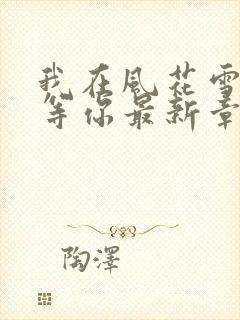 我在風花雪
等你最新章
陶澤